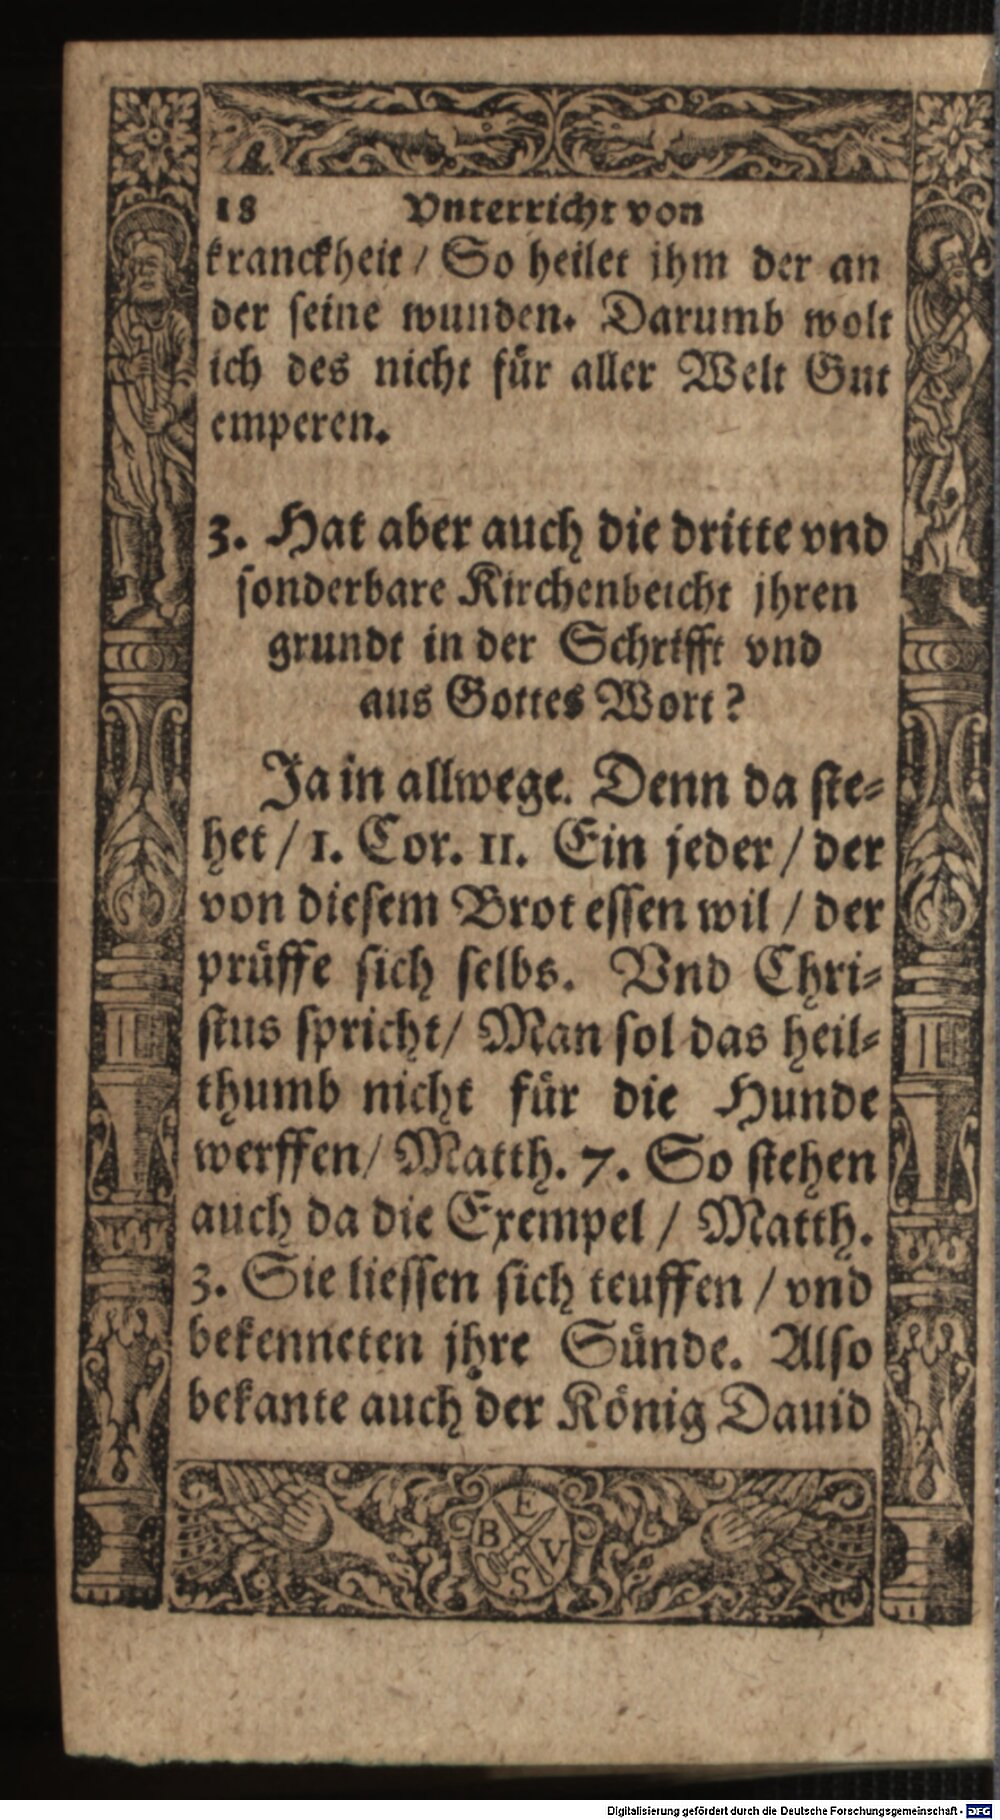 18 Vnterricht von
kranckheit / So heilet jhm der an
der seine wunden. Darumb wolt
ich des nicht für aller Welt Gut
emperen.
3. Hat aber auch die dritte vnd
sonderbare Kirchenbeicht jhren
grundt in der Schrifft vnd
aus Gottes Wort?
Ja in allwege. Denn da ste-
het / 1. Cor. 11. Ein jeder / der
von diesem Brot essen wil / der
prüffe sich selbs. Vnd Chri-
stus spricht / Man sol das heil-
thumb nicht für die Hunde
werffen / Matth. 7. So stehen
auch da die Exempel / Matth.
3. Sie liessen sich teuffen / vnd
bekenneten jhre Sünde. Also
bekante auch der König Dauid
E
B V
S
Digitalisierung gefördert durch die Deutsche Forschungsgemeinschaft - DFG